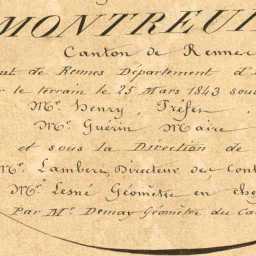 MONTREUI
Canton de Rennes
ut de Rennes Département d'I
r le terrain le 25 Mars 1843 sous
Mr. Henry, Préfet
Mr. Guérin, Maire
et sous la Direction de
Mr. Lambert, Directeur des Cont
Mr. Lesné Géomètre en chef
Par Mr. Demay Géomètre du Ca